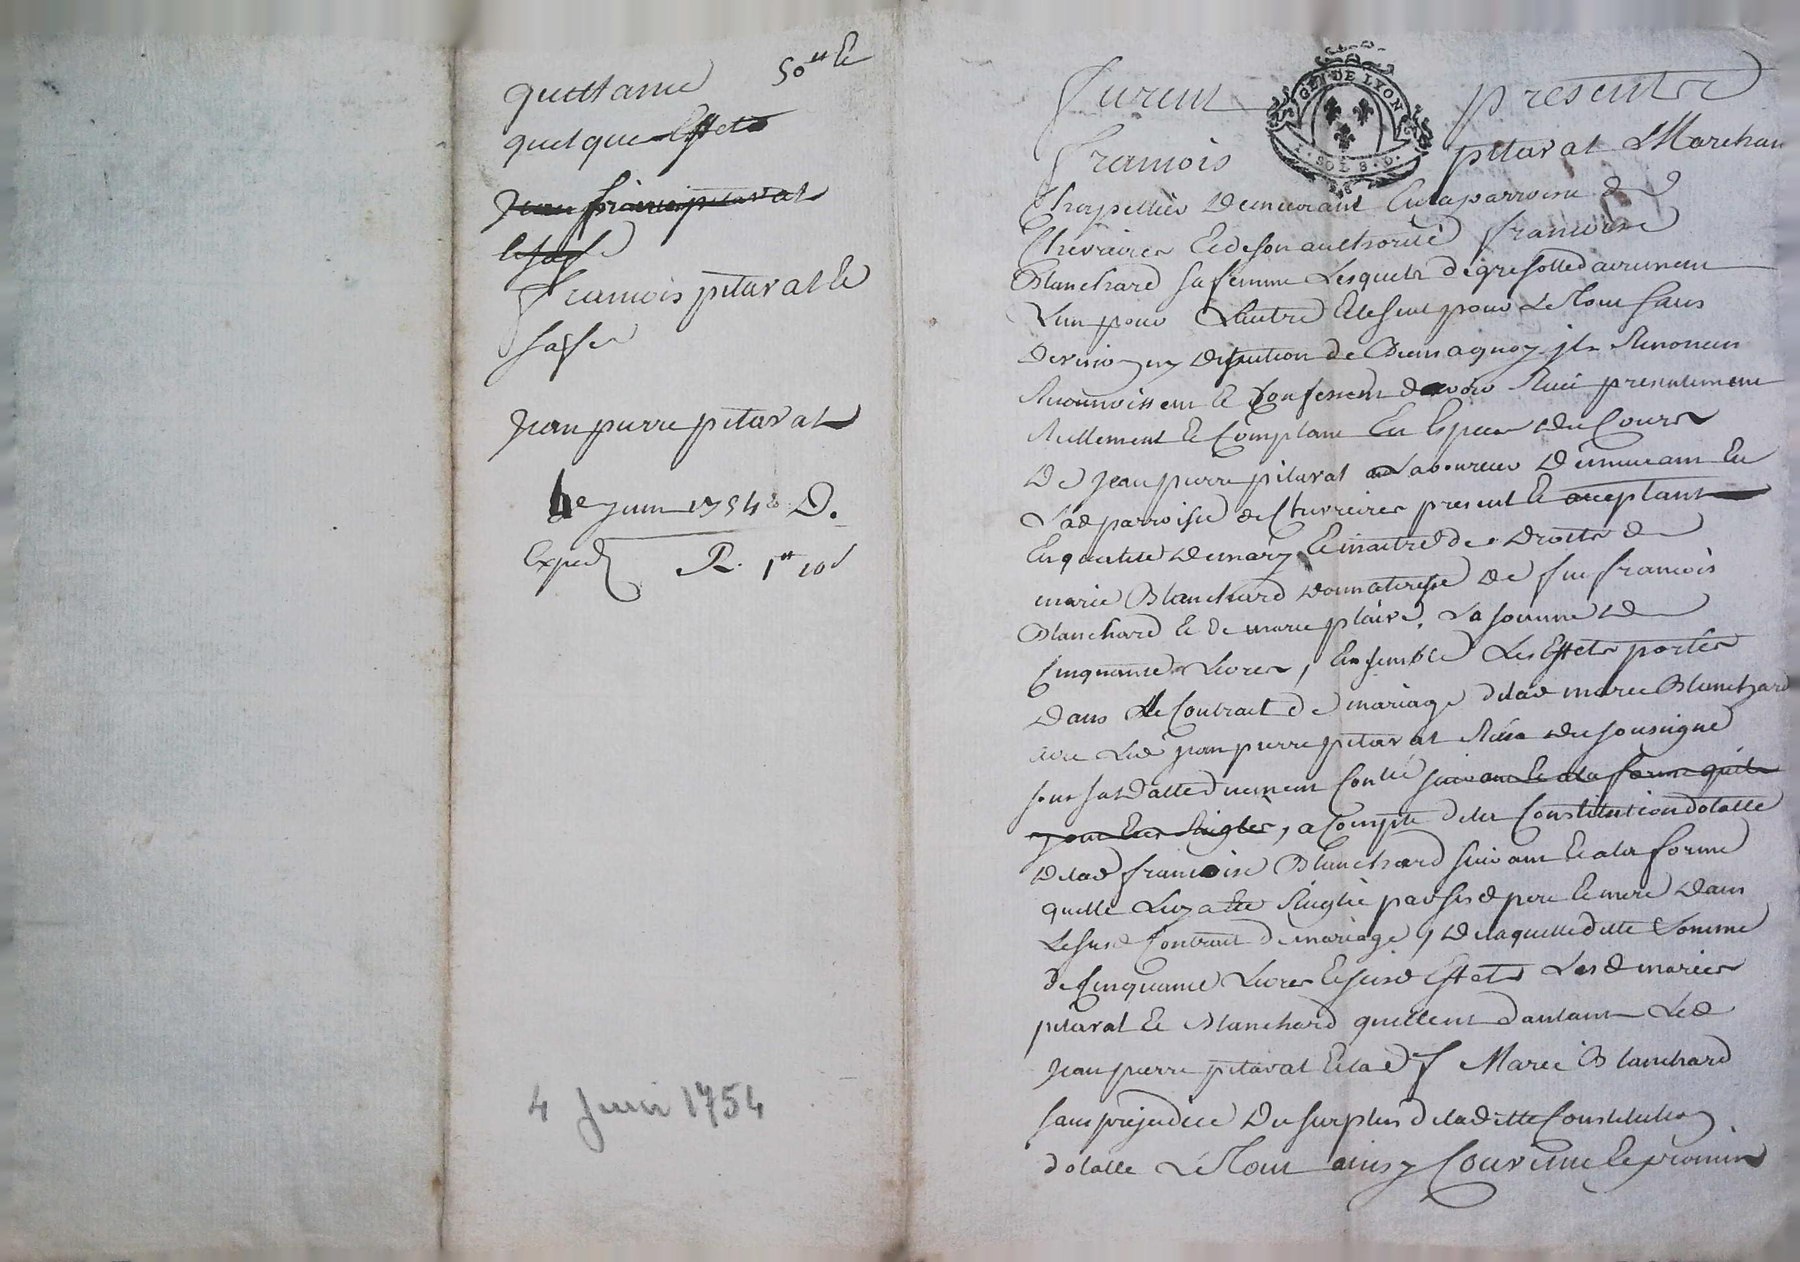 quittance 50tt &
quelque Effets
Jean francois pitaval
& sa fe
francois pitaval &
sa fe
Jean pierre pitaval
4e Juin 1754 D.
Exped R. 1tt 10s
4 Juin 1754
GEN DE LYON
1. SOL 8. D.
furent presents
francois pitaval Marchan
Chapellier demeurant En la parroisse de
Chevrieres & de son authorité francoise
Blanchard sa femme Lesquels de gre sollidairement
Lun pour Lautre & le seul pour Le Tout sans
division ny discution de Quoy ils Renoncent
Reconnoissent & Confessent davoir Recu presentement
Reellement & Comptant En Especes du Cours
De Jean pierre pitaval Laboureur demeurant En
Lad parroisse de Chevrieres present & acceptant
En qualité de mary & maitre des droits de
marie Blanchard donnateresse de feu francois
Blanchard & de marie plaire. La somme de
Cinquante Livres, Ensemble Les Effets portés
dans Le Contrat de mariage de lad marie Blanchard
avec Led Jean pierre pitaval Recu du sousigné
suivant & a la forme quils
y ont Ete Reiglés, a Compte de la Constitution dotalle
de lad francoise Blanchard suivant & a la forme
quelle Luy a Ete Reiglé par sesd pere & mere dans
Le susd Contrat de mariage, de laquelle ditte Somme
de Cinquante Livres & susd Effets Lesd mariés
pitaval & Blanchard quittent dautant Led
Jean pierre pitaval & lad f Marie Blanchard
sans prejudice du surplus de la ditte Constitution
dotalle Le Tout ainsy Convenu & promis